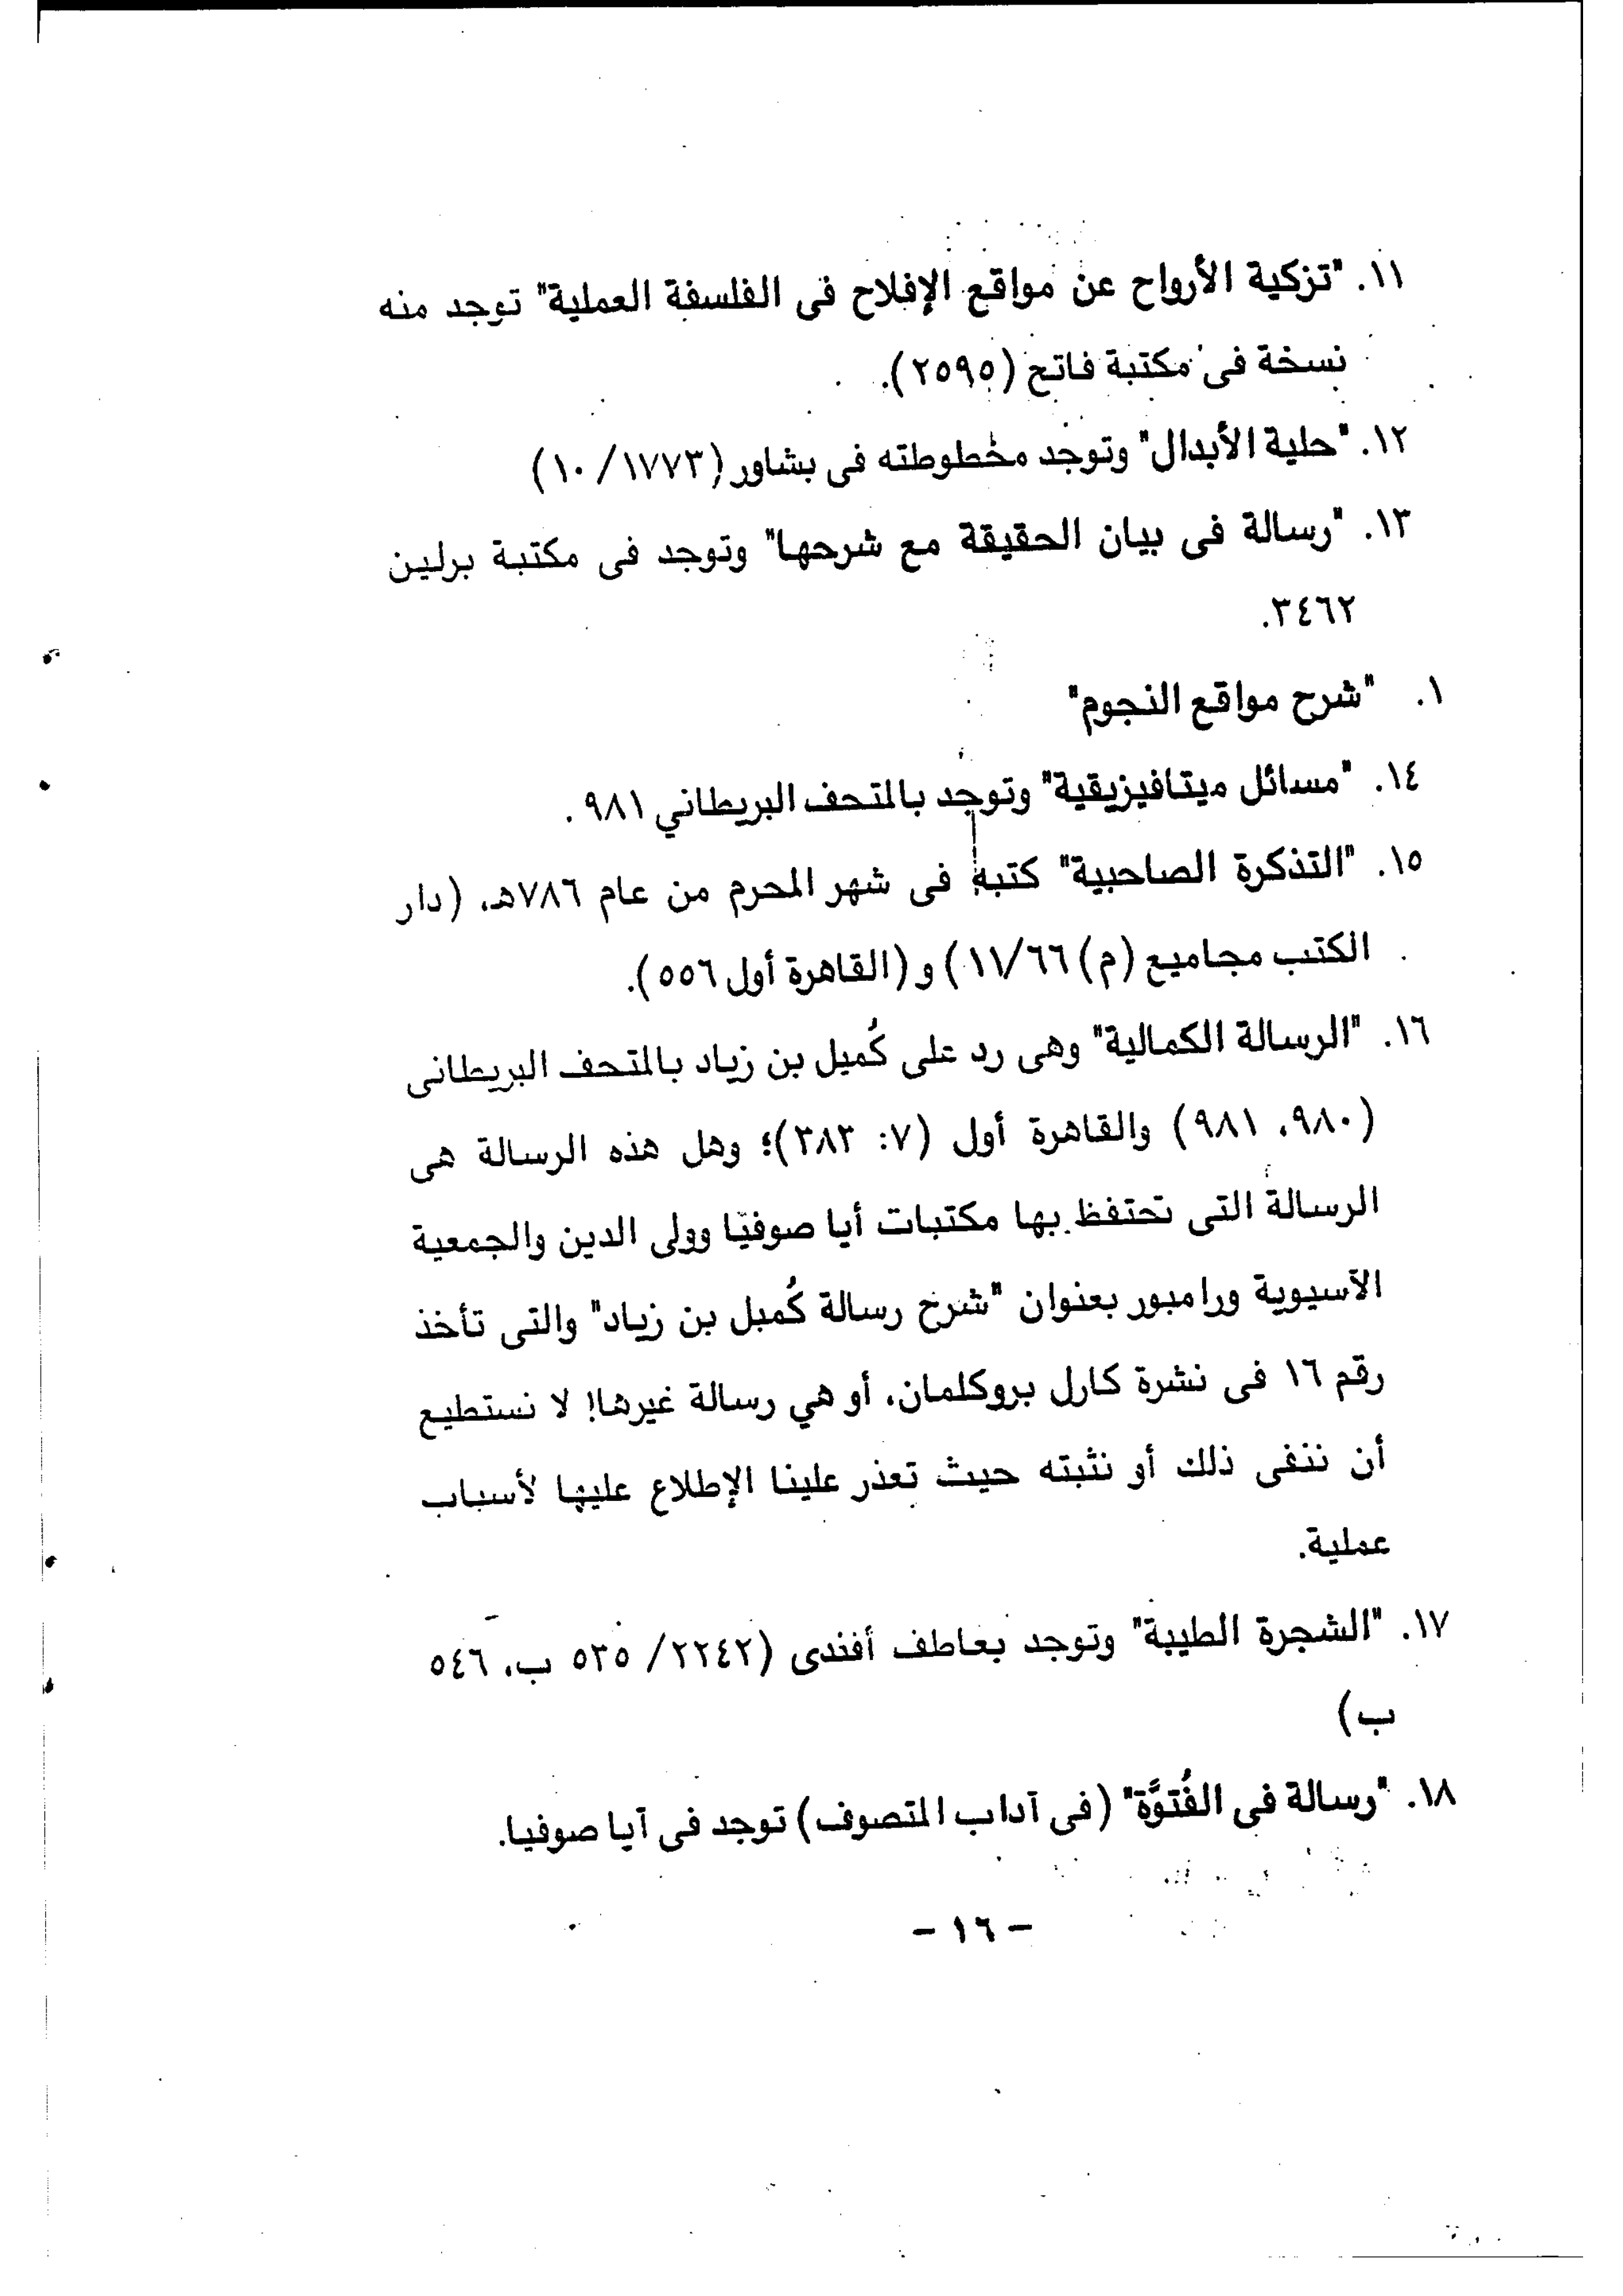 ١١. "تزكية الأرواح عن مواقع الإفلاح فى الفلسفة العملية" توجد منه
نسخة فى مكتبة فاتح (٢٥٩٥).
١٢. "حلية الأبدال" وتوجد مخطوطته فى بشاور (١٧٧٣/ ١٠)
١٣. "رسالة فى بيان الحقيقة مع شرحها" وتوجد فى مكتبة برلين
٣٤٦٢.
١. "شرح مواقع النجوم"
١٤. "مسائل ميتافيزيقية" وتوجد بالمتحف البريطاني ٩٨١ .
١٥. "التذكرة الصاحبية" كتبه فى شهر المحرم من عام ٧٨٦هـ، (دار
الكتب مجاميع (م) ١١/٦٦) و (القاهرة أول ٥٥٦).
١٦. "الرسالة الكمالية" وهى رد على كُميل بن زياد بالمتحف البريطانى
(٩٨٠، ٩٨١) والقاهرة أول (٧: ٣٨٣)؛ وهل هذه الرسالة هى
الرسالة التى تحتفظ بها مكتبات أيا صوفيا وولى الدين والجمعية
الآسيوية ورامبور بعنوان "شرح رسالة كُمبل بن زياد" والتى تأخذ
رقم ١٦ فى نشرة كارل بروكلمان، أو هي رسالة غيرها! لا نستطيع
أن ننفى ذلك أو نثبته حيث تعذر علينا الإطلاع عليها لأسباب
عملية.
١٧. "الشجرة الطيبة" وتوجد بعاطف أفندى (٢٢٤٢/ ٥٣٥ ب، ٥٤٦
ب)
١٨. "رسالة فى الفُتوَّة" (فى آداب المتصوف) توجد فى آيا صوفيا.
- ١٦ -